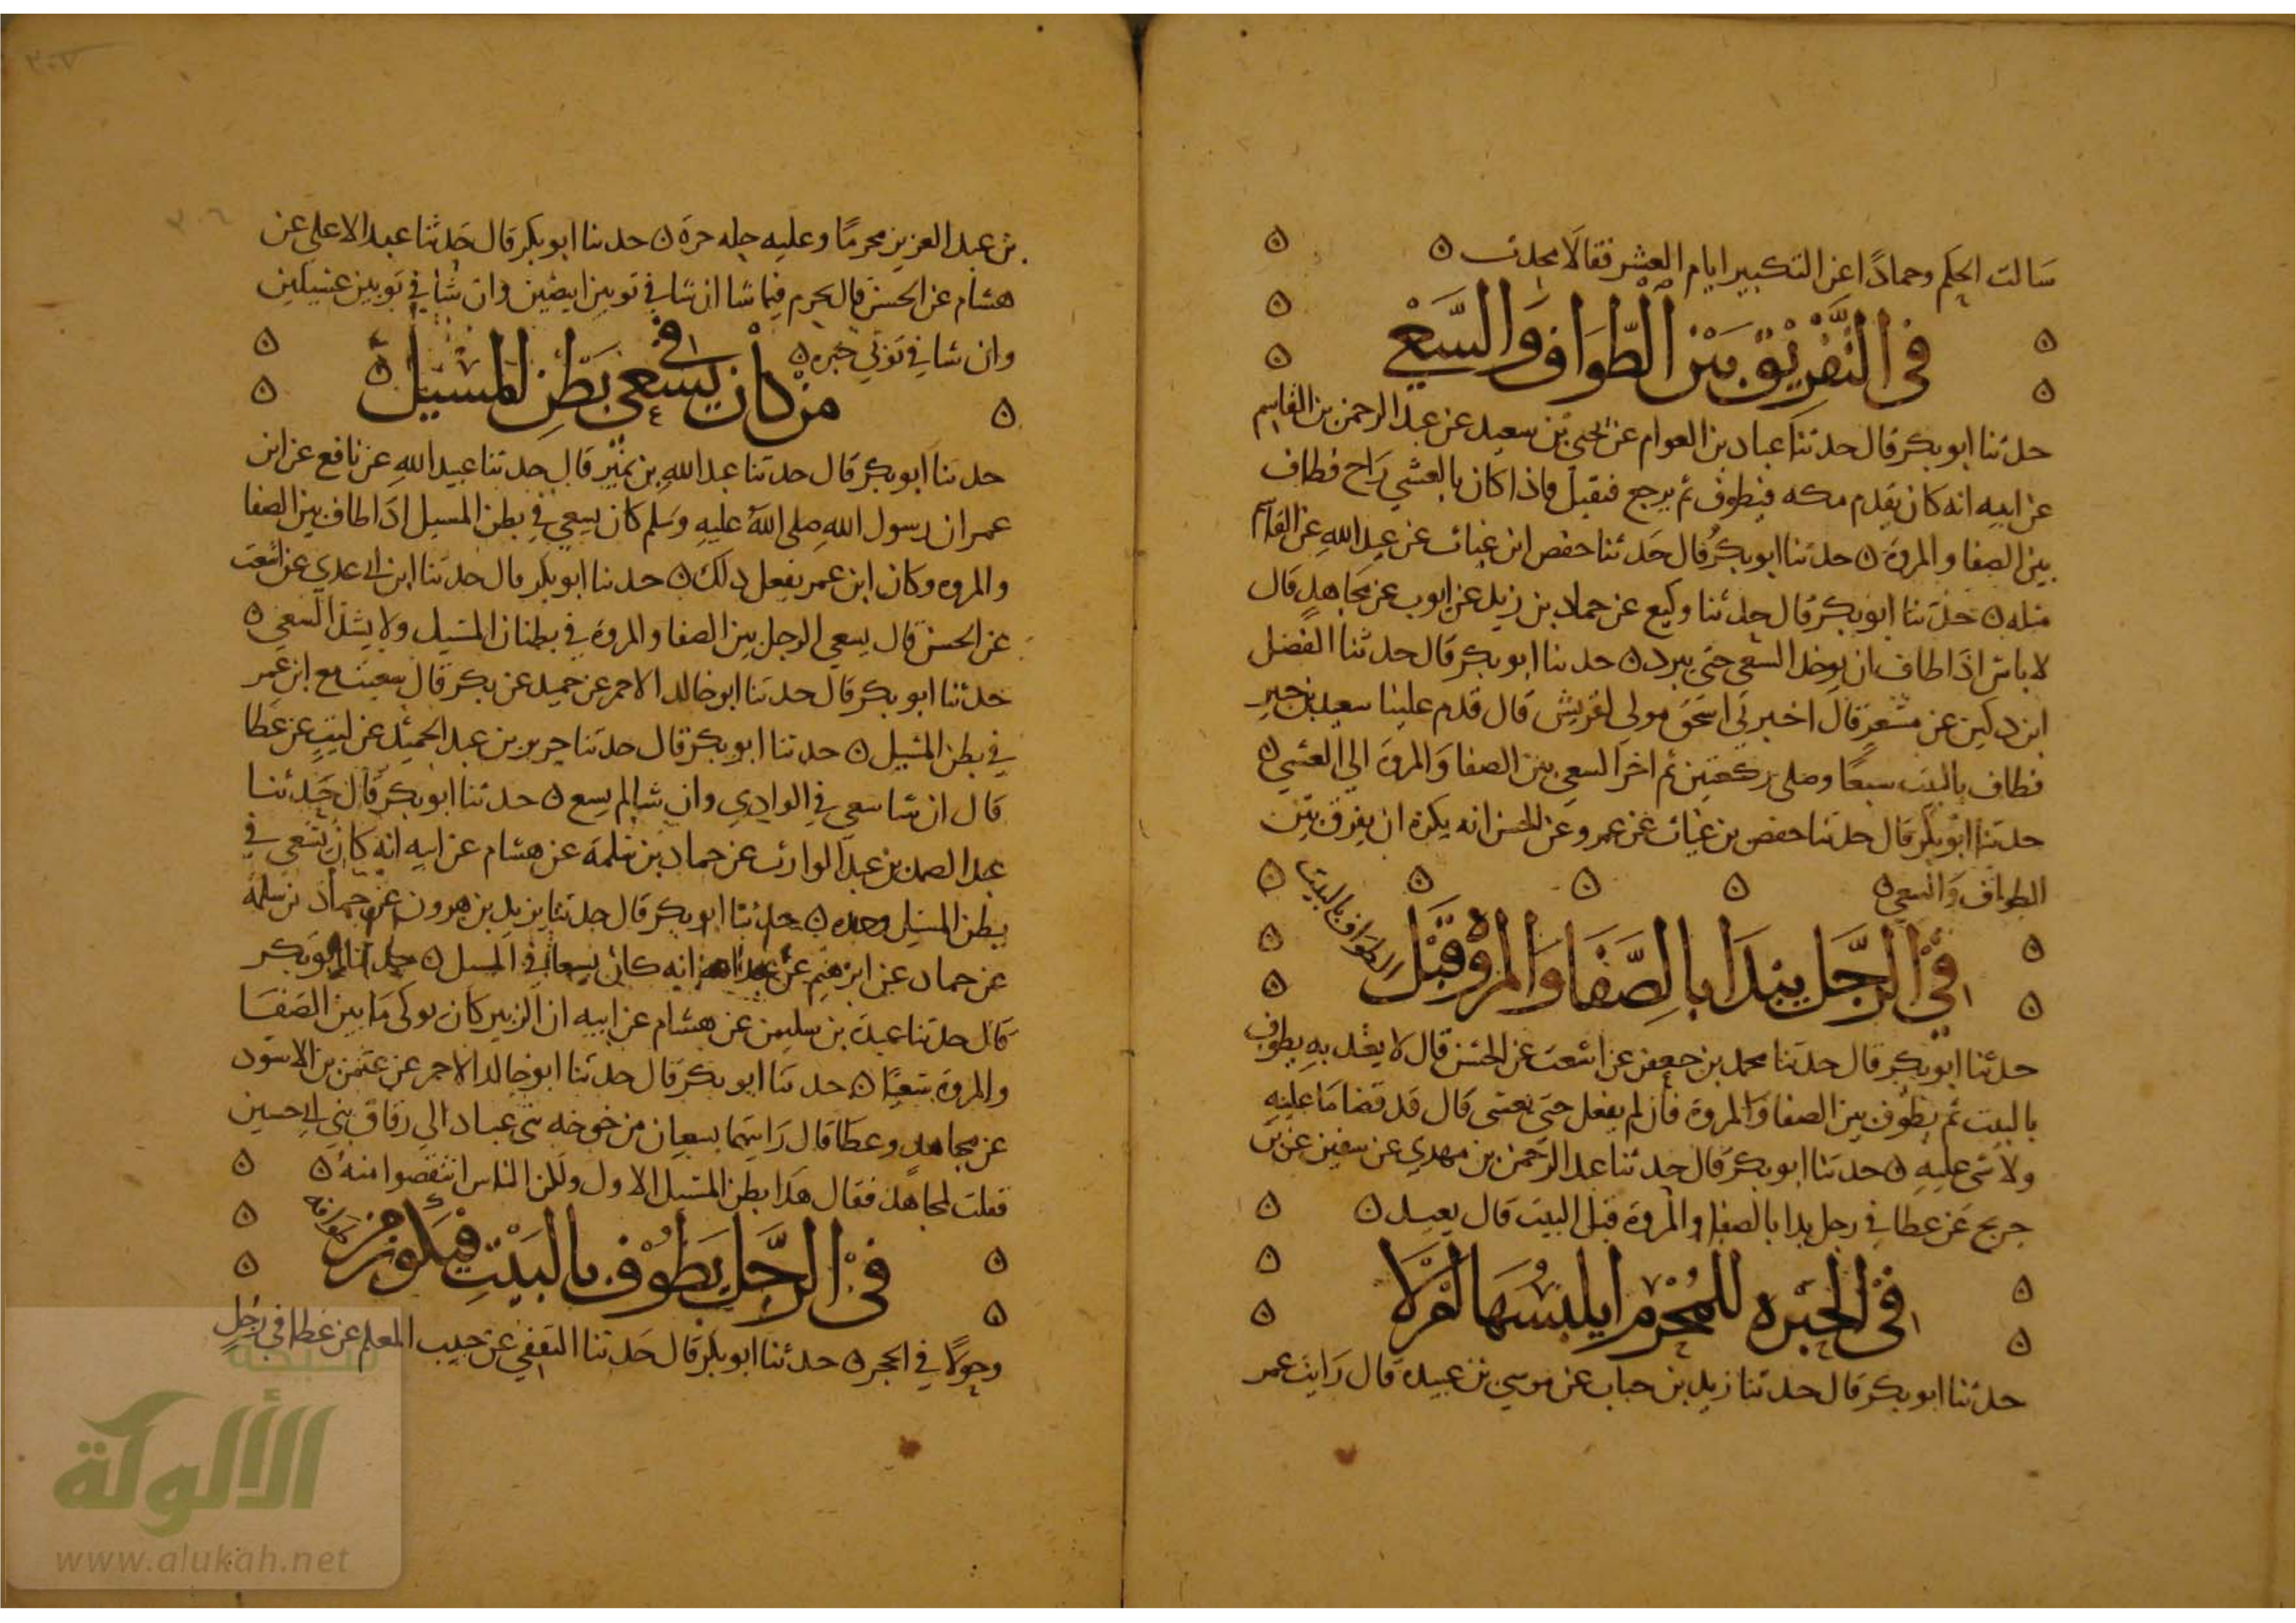 سالت الحكم وحمادًا عن التكبير ايام العشر فقالا محدث ه
في التفريق بين الطواف والسعي
حدثنا ابو بكر قال حدثنا عباد بن العوام عن يحيى بن سعيد عن عبد الرحمن بن القاسم
عن ابيه انه كان يقدم مكه فيطوف ثم يرجع فيقيل فاذا كان بالعشي راح فطاف
بين الصفا والمروة ه حدثنا ابو بكر قال حدثنا حفص ابن غياث عن عبيد الله عن القاسم
مثله ه حدثنا ابو بكر قال حدثنا وكيع عن حماد بن زيد عن ايوب عن مجاهد قال
لا باس اذا طاف ان يوخر السعي حتى يبرد ه حدثنا ابو بكر قال حدثنا الفضل
ابن دكين عن مسعر قال اخبرني اسحق مولى لقريش قال قدم علينا سعيد بن جبير
فطاف بالبيت سبعًا وصلى ركعتين ثم اخر السعي بين الصفا والمروة الي العشي ه
حدثنا ابو بكر قال حدثنا حفص بن غياث عن عمرو عن الحسن انه يكره ان يفرق بين
الطواف والسعي ه
في الرجل يبدا بالصفا والمروة قبل الطواف بالبيت
حدثنا ابو بكر قال حدثنا محمد بن جعفر عن اشعث عن الحسن قال لا يعتد به يطوف
بالبيت ثم يطوف بين الصفا والمروة فان لم يفعل حتى يغشى قال قد قضا ما عليه
ولا شى عليه ه حدثنا ابو بكر قال حدثنا عبد الرحمن بن مهدي عن سفين عن بن
جريج عن عطا في رجل بدا بالصفا والمروة قبل البيت قال يعيد ه
في الحبره للمحرم ايلبسها ام لا
حدثنا ابو بكر قال حدثنا زيد بن حباب عن موسي بن عبيدة قال رايت عمر
بن عبد العزيز محرمًا وعليه حله حرة ه حدثنا ابو بكر قال حدثنا عبد الاعلي عن
هشام عن الحسن قال يحرم فيما شا ان شا في ثوبين ابيضين وان شا في ثوبين غسيلين
وان شا في ثوبي حبره ه
من كان يسعى في بطن المسيل ه
حدثنا ابو بكر قال حدثنا عبد الله بن نمير قال حدثنا عبيد الله عن نافع عن ابن
عمر ان رسول الله صلى الله عليه وسلم كان يسعي في بطن المسيل اذا طاف بين الصفا
والمروه وكان ابن عمر يفعل ذلك ه حدثنا ابو بكر قال حدثنا ابن ابي عدي عن اشعث
عن الحسن قال يسعي الرجل بين الصفا والمروة في بطنان المسيل ولا يشتد السعي ه
حدثنا ابو بكر قال حدثنا ابو خالد الاحمر عن حميد عن بكر قال سعيت مع ابن عمر
في بطن المسيل ه حدثنا ابو بكر قال حدثنا جرير بن عبد الحميد عن ليث عن عطا
قال ان شا سعي في الوادي وان شا لم يسع ه حدثنا ابو بكر قال حدثنا
عبد الصمد بن عبد الوارث عن حماد بن سلمة عن هشام عن ابيه انه كان يسعي في
بطن المسيل وحده ه حدثنا ابو بكر قال حدثنا يزيد بن هرون عن حماد بن سلمة
عن حماد عن ابرهيم عن انه كان يسعا في المسيل ه حدثنا ابو بكر
قال حدثنا عبدة بن سليمن عن هشام عن ابيه ان الزبير كان يوكي ما بين الصفا
والمروة سعيًا ه حدثنا ابو بكر قال حدثنا ابو خالد الاحمر عن عثمن بن الاسود
عن مجاهد وعطا قال رايتهما يسعيان من خوخه بني عباد الي زقاق بني ابي حسين
فقلت لمجاهد فقال هذا بطن المسيل الاول ولكن الناس انتقصوا منه ه
في الرجل يطوف بالبيت فيكون من طوافه
دخولًا في الحجر ه حدثنا ابو بكر قال حدثنا الثقفي عن حبيب المعلم عن عطا في رجل
شبكة
الألوكة
www.alukah.net